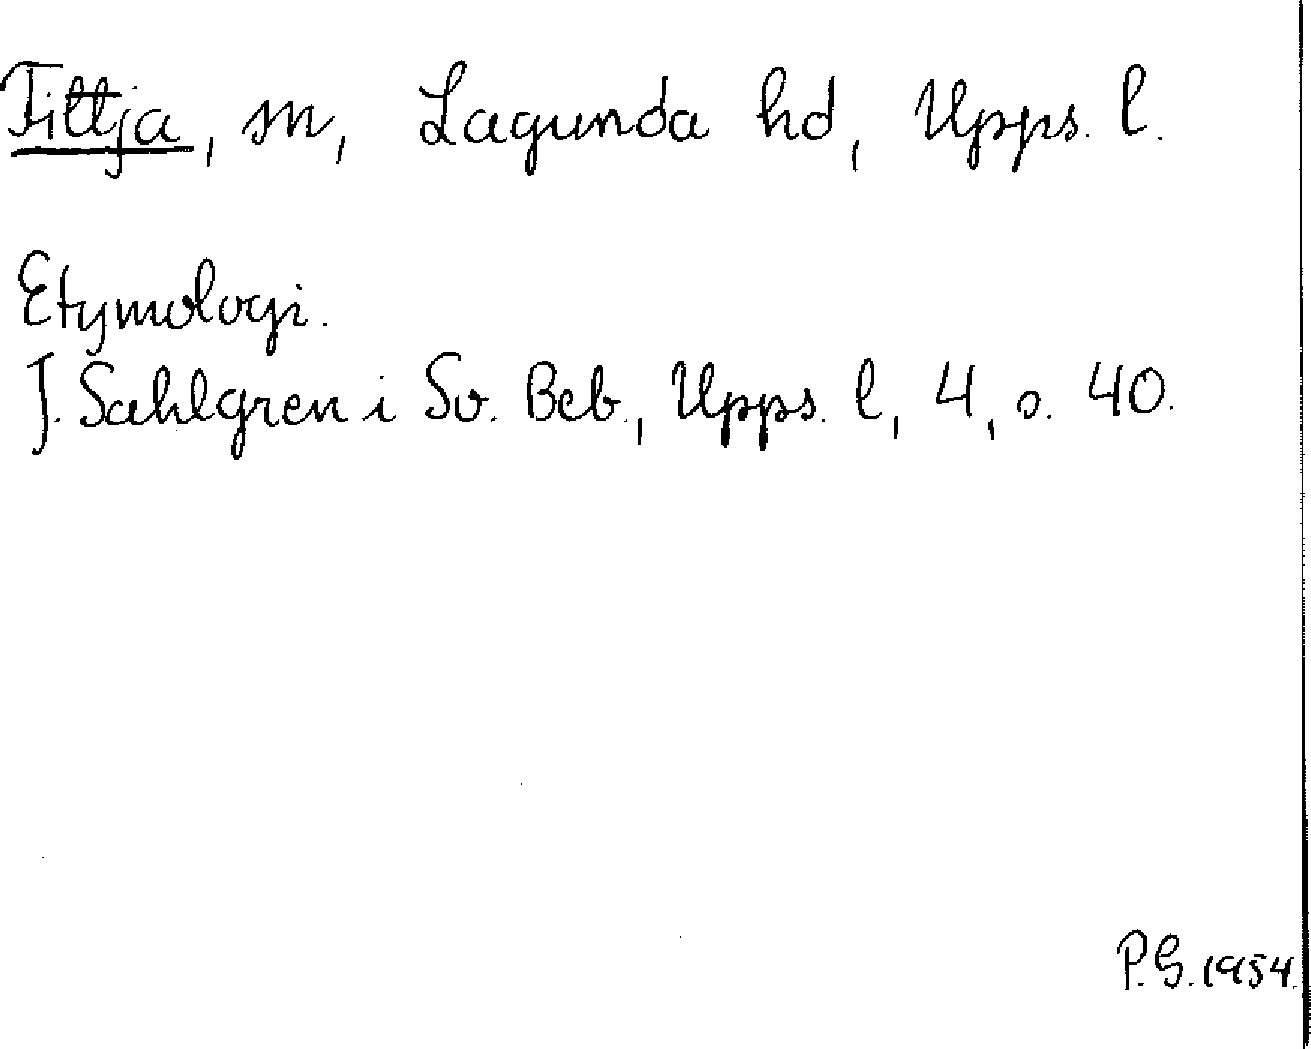 Fittja, sn, Lagunda hd, Upps. l.
Etymologi.
J. Sahlgren i Sv. Beb., Upps. l, 4, s. 40.
P.G. 1954.